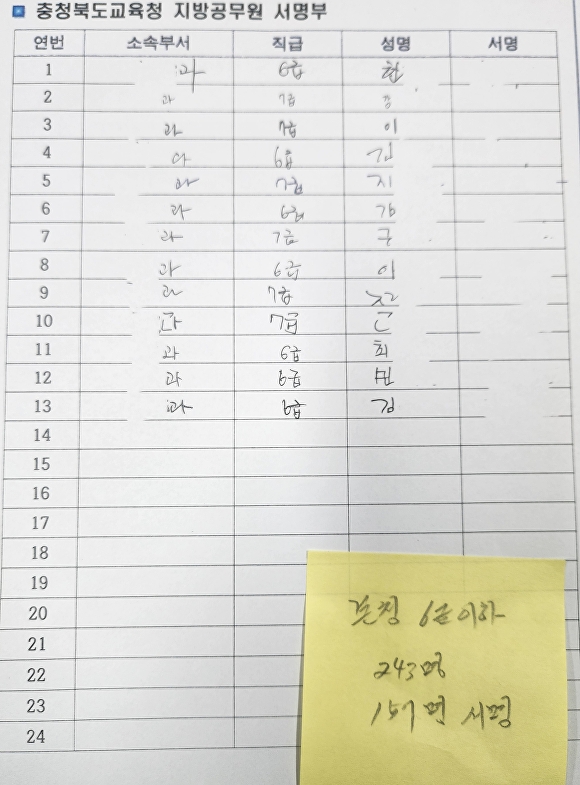 충청북도교육청 지방공무원 서명부
연번 소속부서 직급 성명 서명
1 과 6급 한
2 과 7급 강
3 과 7급 이
4 과 6급 김
5 과 7급 지
6 과 6급 강
7 과 7급 구
8 과 6급 이
9 과 7급
10 과 7급
11 과 6급 최
12 과 6급
13 과 6급 김
14
15
16
17
18
19
20
21
22
23
24
본청 6급이하
243명
157명 서명